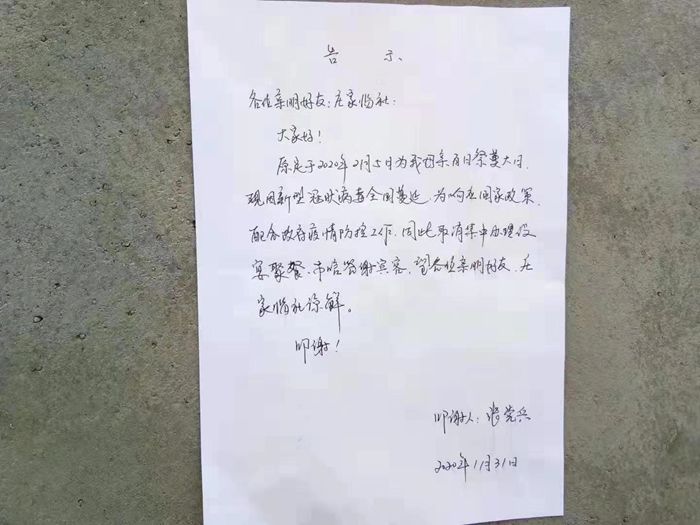 告 示
各位亲朋好友:左家临社:
大家好!
原定于2020年2月5日为我母亲百日祭奠大日,
现因新型冠状病毒全国蔓延,为响应国家政策,
配合政府疫情防控工作,因此取消集中办理设
宴聚餐、答谢宾客,望各位亲朋好友、左
家临社谅解。
叩谢!
叩谢人:党兵
2020年1月31日